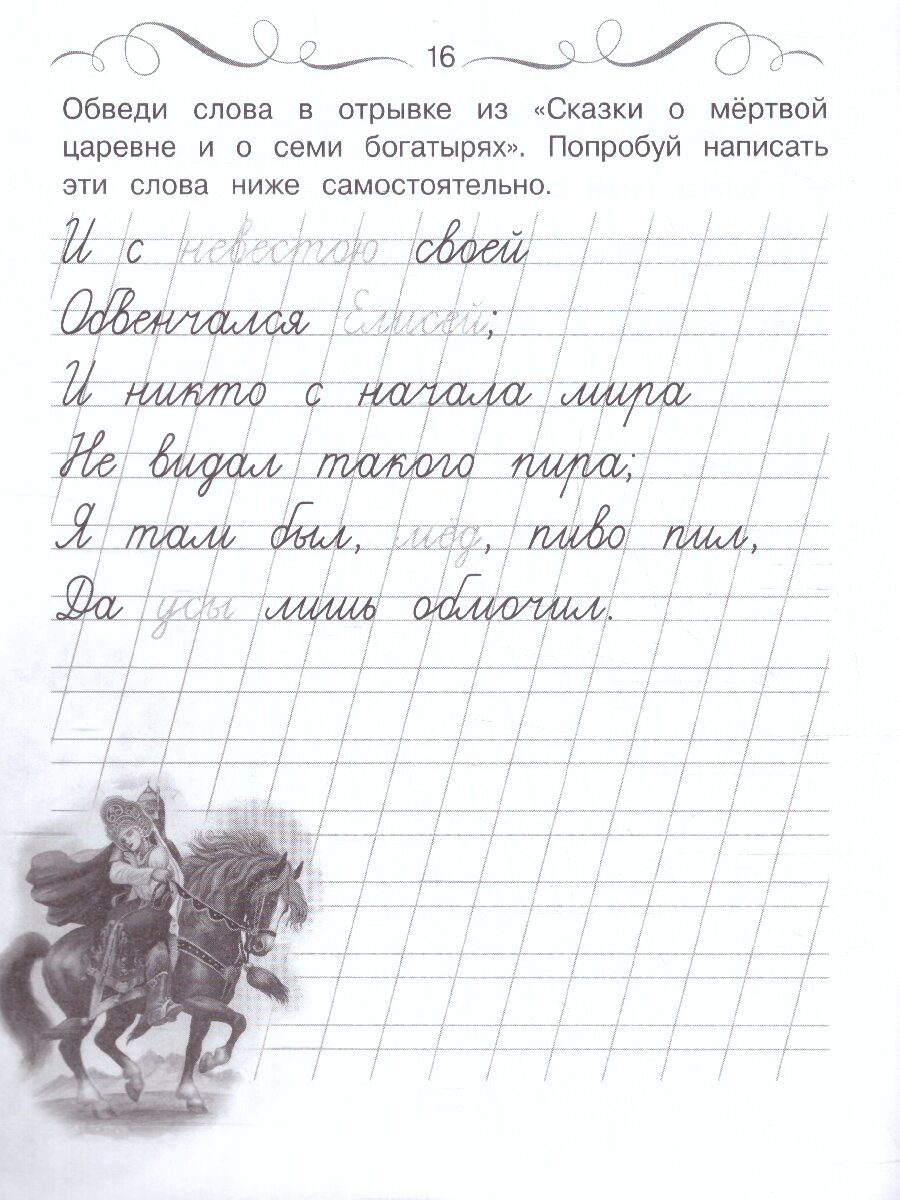 16
Обведи слова в отрывке из «Сказки о мёртвой
царевне и о семи богатырях». Попробуй написать
эти слова ниже самостоятельно.
И с невестою своей
Обвенчался Елисей;
И никто с начала мира
Не видал такого пира;
Я там был, мёд, пиво пил,
Да усы лишь обмочил.